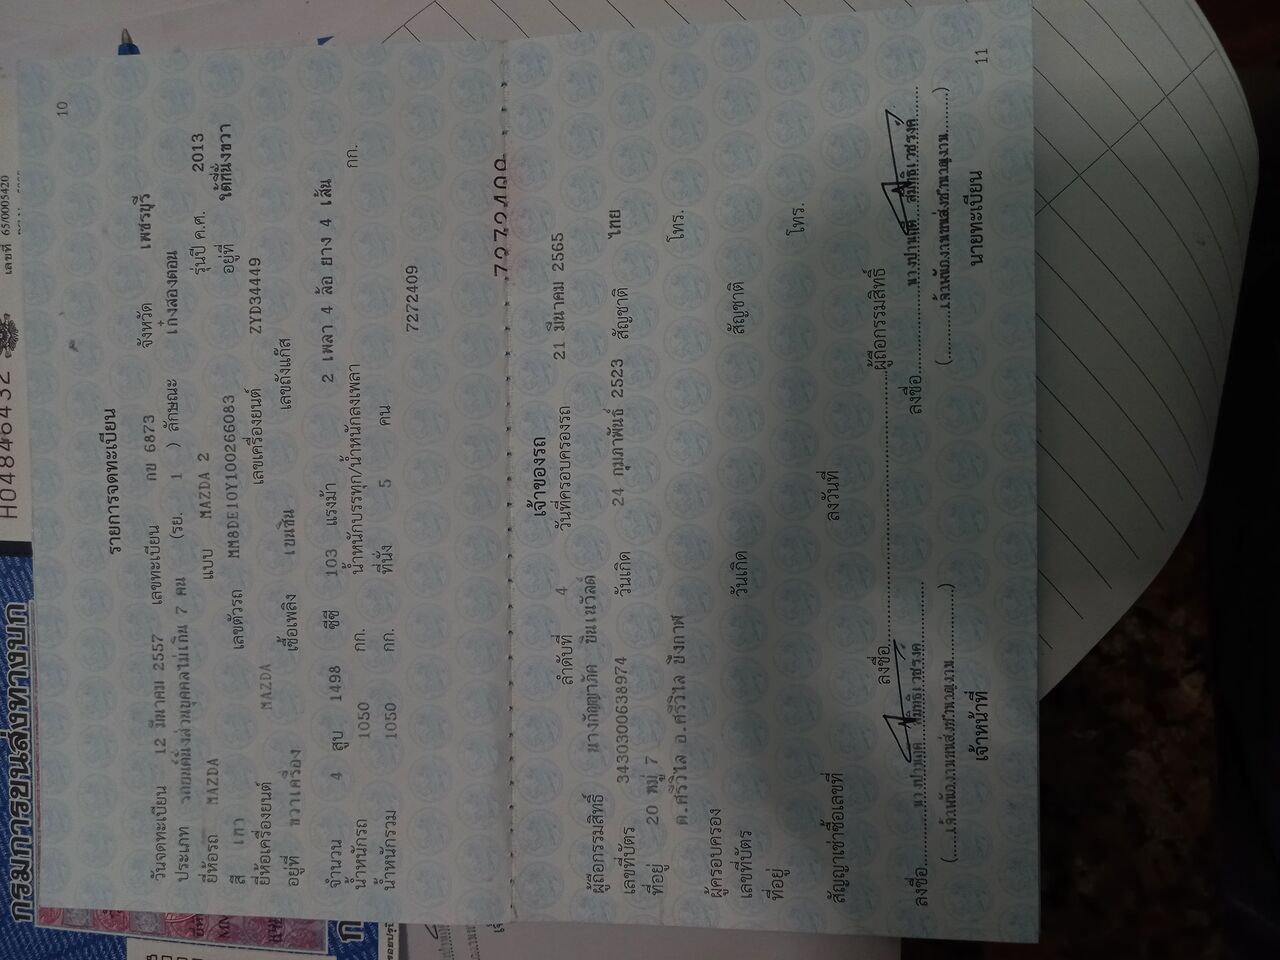 กรมการขนส่งทางบก
H04846432
เลขที่ 65/0005420
10
รายการจดทะเบียน
วันจดทะเบียน 12 มีนาคม 2557 เลขทะเบียน กข 6873 จังหวัด เพชรบุรี
ประเภท รถยนต์นั่งส่วนบุคคลไม่เกิน 7 คน (รย. 1 ) ลักษณะ เก๋งสองตอน
ยี่ห้อรถ MAZDA แบบ MAZDA 2 รุ่นปี ค.ศ. 2013
สี เทา เลขตัวรถ MM8DE10Y100266083 อยู่ที่ ใต้ที่นั่งขวา
ยี่ห้อเครื่องยนต์ MAZDA เลขเครื่องยนต์ ZYD34449
อยู่ที่ ขวาเครื่อง เชื้อเพลิง เบนซิน เลขถังแก๊ส
จำนวน 4 สูบ 1498 ซีซี 103 แรงม้า 2 เพลา 4 ล้อ ยาง 4 เส้น
น้ำหนักรถ 1050 กก. น้ำหนักบรรทุก/น้ำหนักลงเพลา กก.
น้ำหนักรวม 1050 กก. ที่นั่ง 5 คน
7272409
7272409
เจ้าของรถ
ลำดับที่ 4 วันที่ครอบครองรถ 21 มีนาคม 2565
ผู้ถือกรรมสิทธิ์ นางกัญญาภัค
เลขที่บัตร 3430300638974 วันเกิด 24 กุมภาพันธ์ 2523 สัญชาติ ไทย
ที่อยู่ 20 หมู่ 7 โทร.
ต.ศรีวิไล อ.ศรีวิไล บึงกาฬ
ผู้ครอบครอง
เลขที่บัตร วันเกิด สัญชาติ
ที่อยู่ โทร.
สัญญาเช่าซื้อเลขที่ ลงวันที่
ลงชื่อ ผู้ถือกรรมสิทธิ์
ลงชื่อ ลงชื่อ
(เจ้าพนักงานขนส่งชำนาญงาน) (เจ้าพนักงานขนส่งชำนาญงาน)
เจ้าหน้าที่ นายทะเบียน
11